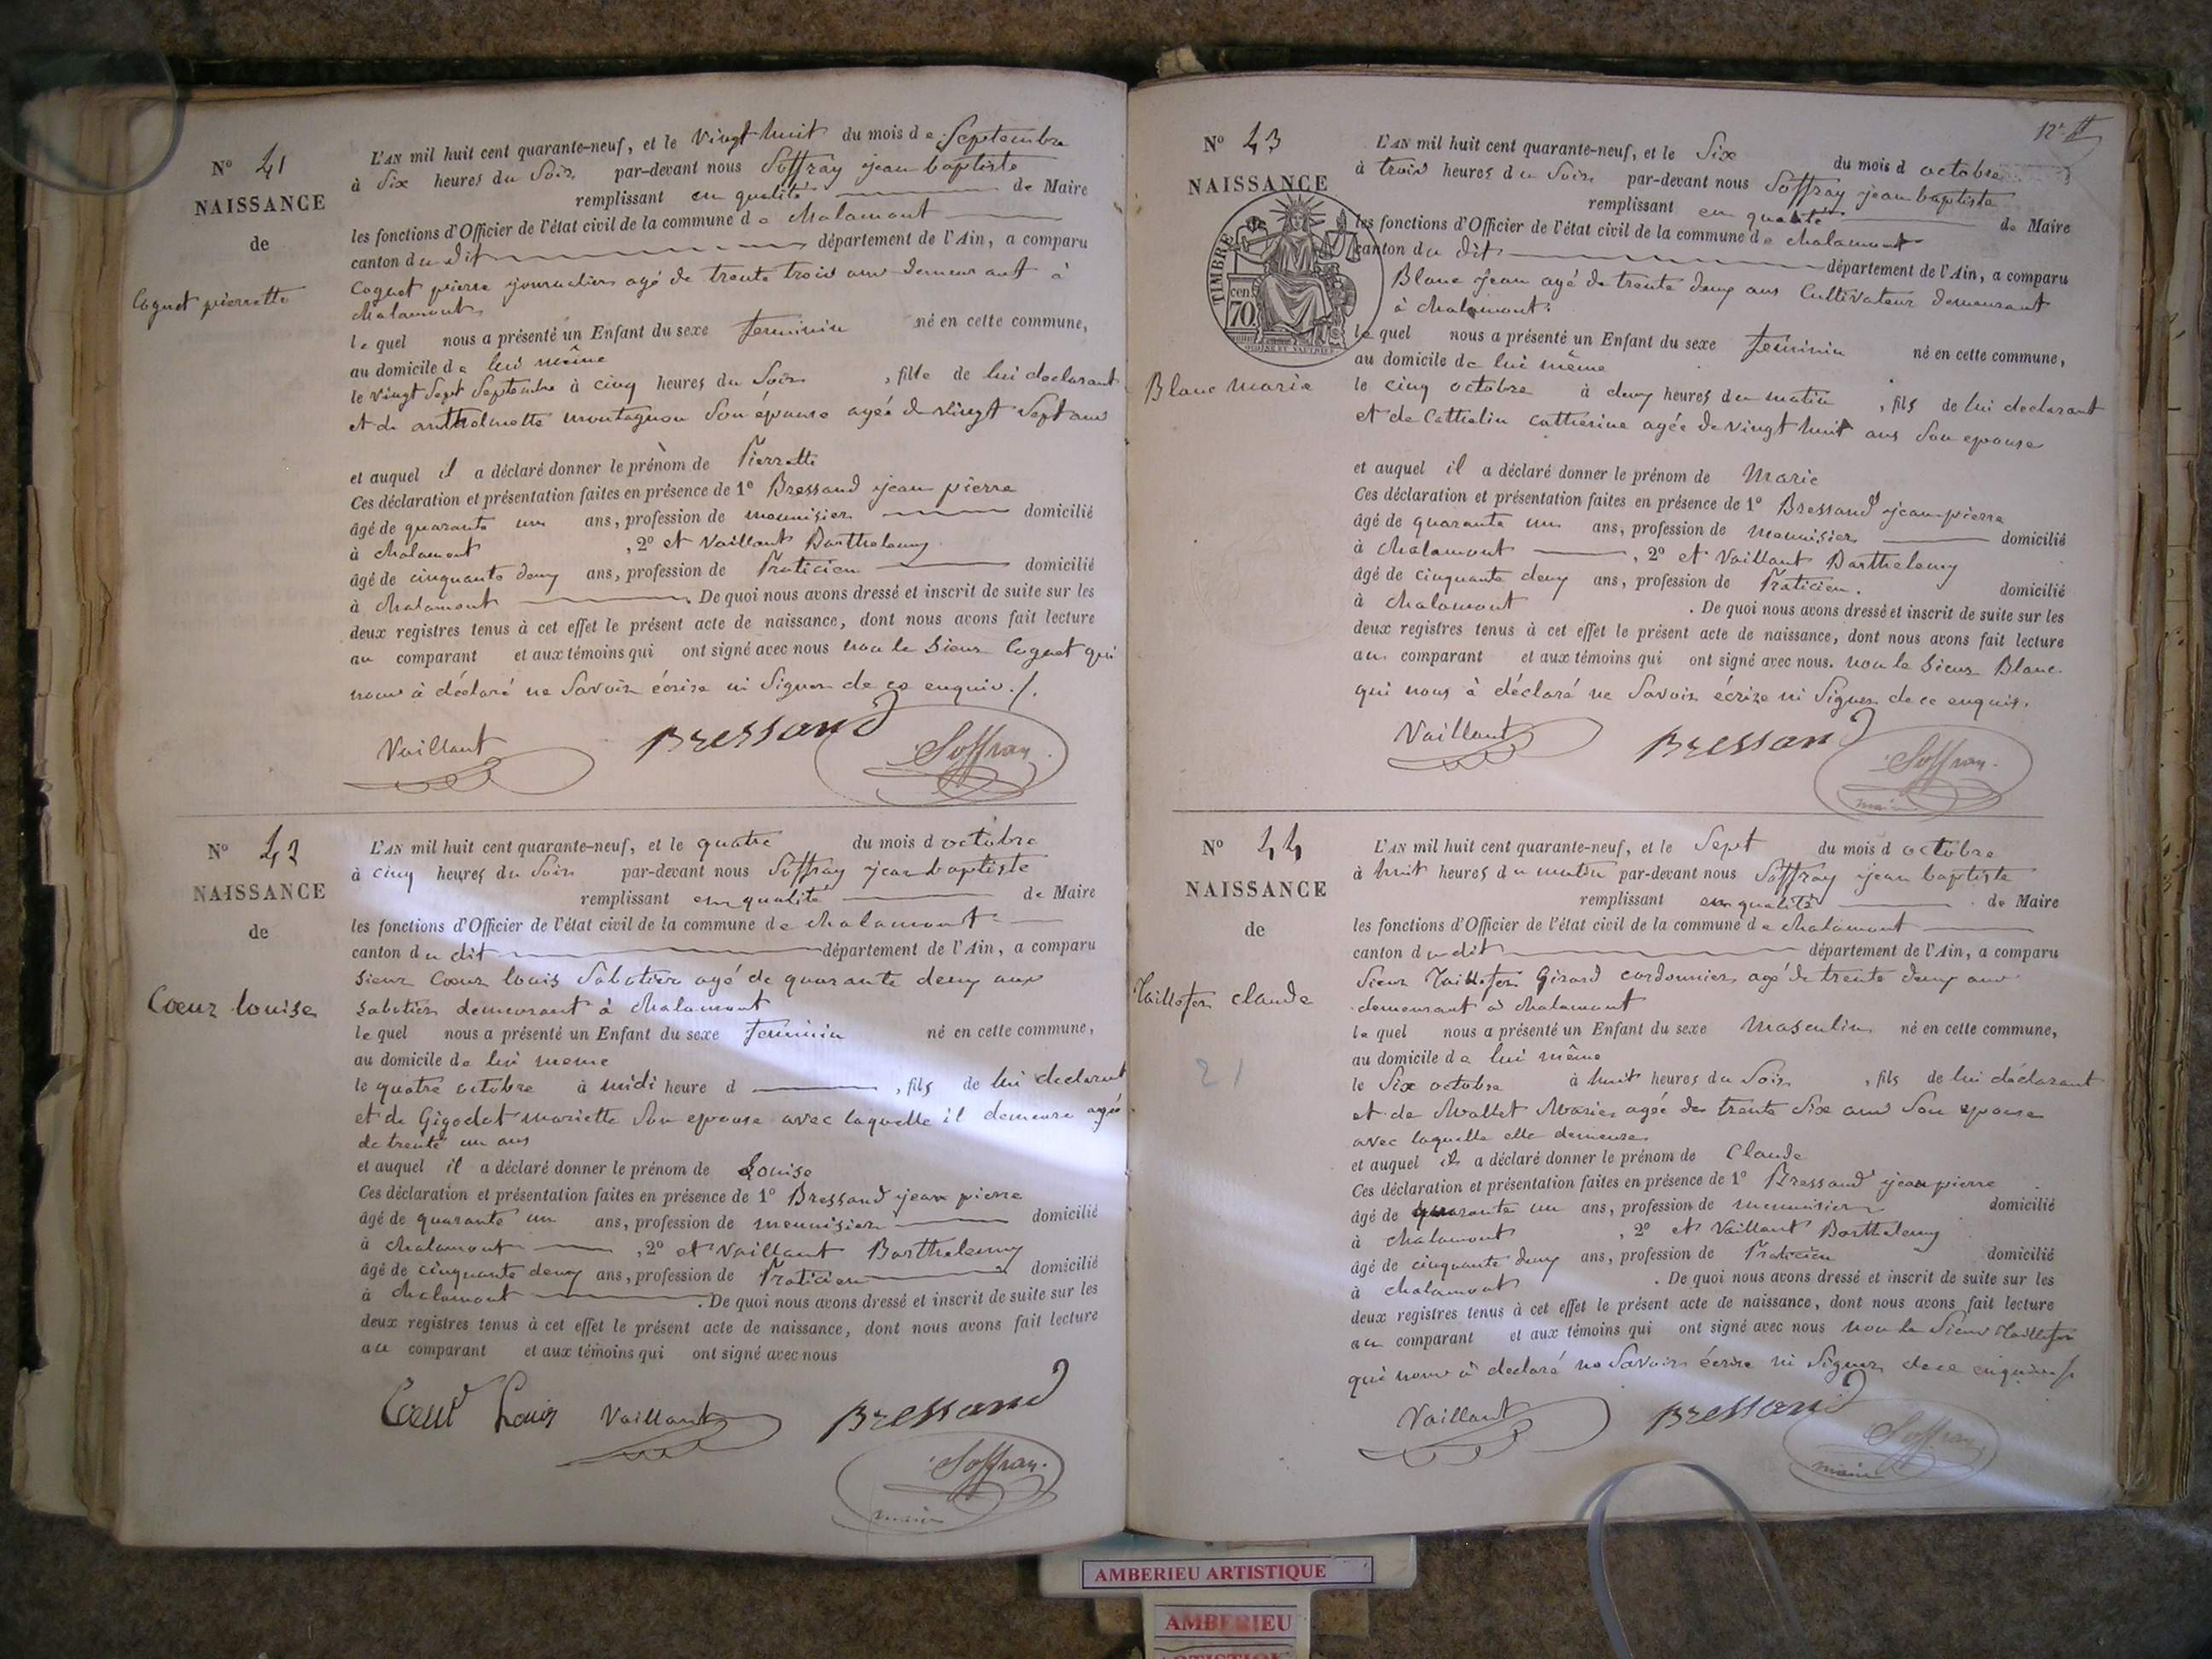 N° 41
NAISSANCE
de
Coguet pierrette
L'AN mil huit cent quarante-neuf, et le Vingt huit du mois de Septembre
à Six heures du Soir par-devant nous Soffray jean baptiste
remplissant en qualité de Maire
les fonctions d'Officier de l'état civil de la commune de chalamont
canton du dit département de l'Ain, a comparu
Coguet pierre journalier agé de trente trois ans demeurant à
chalamont
le quel nous a présenté un Enfant du sexe feminin né en cette commune,
au domicile de lui même
le vingt Sept Septembre à cinq heures du Soir, fille de lui declarant
et de anthelmette montagnon Son épouse agée de vingt Sept ans
et auquel il a déclaré donner le prénom de Pierrette
Ces déclaration et présentation faites en présence de 1° Bressand jean pierre
âgé de quarante un ans, profession de menuisier domicilié
à chalamont, 2° et Vaillant Barthelemy
âgé de cinquante deux ans, profession de Praticien domicilié
à chalamont. De quoi nous avons dressé et inscrit de suite sur les
deux registres tenus à cet effet le présent acte de naissance, dont nous avons fait lecture
au comparant et aux témoins qui ont signé avec nous non le Sieur Coguet qui
nous à déclaré ne Savoir écrire ni Signer de ce enquis ./.
Vaillant Bressand Soffray
N° 42
NAISSANCE
de
Cœur louise
L'AN mil huit cent quarante-neuf, et le quatre du mois d octobre
à cinq heures du Soir par-devant nous Soffray jean baptiste
remplissant en qualité de Maire
les fonctions d'Officier de l'état civil de la commune de chalamont
canton du dit département de l'Ain, a comparu
Sieur Cœur louis Sabotier agé de quarante deux ans
Sabotier demeurant à chalamont
le quel nous a présenté un Enfant du sexe feminin né en cette commune,
au domicile de lui meme
le quatre octobre à midi heure d, fils de lui declarant
et de Gigodet mariette Son epouse avec laquelle il demeure agée
de trente un ans
et auquel il a déclaré donner le prénom de Louise
Ces déclaration et présentation faites en présence de 1° Bressand jean pierre
âgé de quarante un ans, profession de menuisier domicilié
à chalamont, 2° et Vaillant Barthelemy
âgé de cinquante deux ans, profession de Praticien domicilié
à chalamont. De quoi nous avons dressé et inscrit de suite sur les
deux registres tenus à cet effet le présent acte de naissance, dont nous avons fait lecture
au comparant et aux témoins qui ont signé avec nous
Cœur Louis Vaillant Bressand
Soffray
maire
N° 43
NAISSANCE
TIMBRE
cen
70
Blanc Marie
L'AN mil huit cent quarante-neuf, et le Six du mois d octobre
à trois heures du Soir par-devant nous Soffray jean baptiste
remplissant en qualité de Maire
les fonctions d'Officier de l'état civil de la commune de chalamont
canton du dit département de l'Ain, a comparu
Blanc Jean agé de trente deux ans Cultivateur demeurant
à chalamont
le quel nous a présenté un Enfant du sexe feminin né en cette commune,
au domicile de lui même
le cinq octobre à deux heures du matin, fils de lui declarant
et de Cathelin catherine agée de vingt huit ans Son epouse
et auquel il a déclaré donner le prénom de Marie
Ces déclaration et présentation faites en présence de 1° Bressand jean pierre
âgé de quarante un ans, profession de menuisier domicilié
à chalamont, 2° et Vaillant Barthelemy
âgé de cinquante deux ans, profession de Praticien. domicilié
à chalamont. De quoi nous avons dressé et inscrit de suite sur les
deux registres tenus à cet effet le présent acte de naissance, dont nous avons fait lecture
au comparant et aux témoins qui ont signé avec nous. non le Sieur Blanc
qui nous à déclaré ne Savoir écrire ni Signer de ce enquis.
Vaillant Bressand Soffray
maire
N° 44
NAISSANCE
de
Taillefer claude
21
L'AN mil huit cent quarante-neuf, et le Sept du mois d octobre
à huit heures du matin par-devant nous Soffray jean baptiste
remplissant en qualité de Maire
les fonctions d'Officier de l'état civil de la commune de chalamont
canton du dit département de l'Ain, a comparu
Sieur Taillefer Girard cordonnier agé de trente deux ans
demeurant à chalamont
le quel nous a présenté un Enfant du sexe Masculin né en cette commune,
au domicile de lui même
le Six octobre à huit heures du Soir, fils de lui déclarant
et de Mallet Marie agée de trente Six ans Son epouse
avec laquelle elle demeure
et auquel il a déclaré donner le prénom de Claude
Ces déclaration et présentation faites en présence de 1° Bressand jean pierre
âgé de quarante un ans, profession de menuisier domicilié
à chalamont, 2° et Vaillant Barthelemy
âgé de cinquante deux ans, profession de Praticien domicilié
à chalamont. De quoi nous avons dressé et inscrit de suite sur les
deux registres tenus à cet effet le présent acte de naissance, dont nous avons fait lecture
au comparant et aux témoins qui ont signé avec nous non le Sieur Taillefer
qui nous à declaré ne Savoir écrire ni Signer de ce enquis ./.
Vaillant Bressand Soffray
maire
AMBERIEU ARTISTIQUE
AMBERIEU
ARTISTIQUE